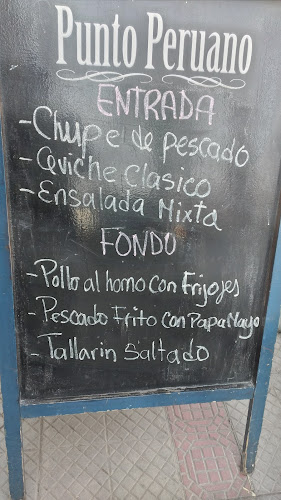 Punto Peruano
ENTRADA
-Chupe de pescado
-Ceviche Clasico
-Ensalada Mixta
FONDO
-Pollo al horno con Frijoles
-Pescado Frito con Papa Mayo
-Tallarin Saltado